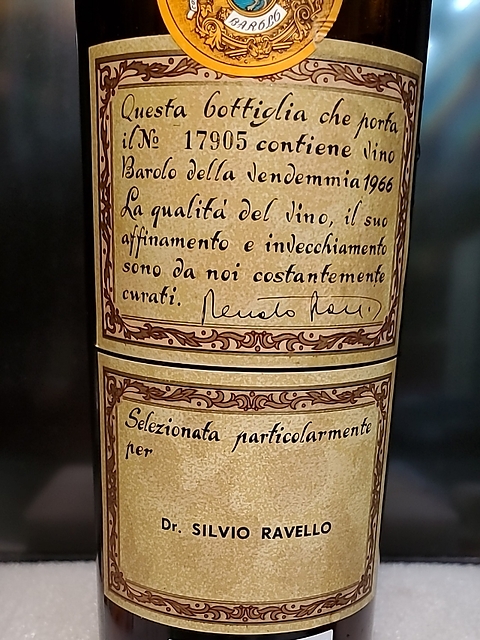 BAROLO
Questa bottiglia che porta
il No 17905 contiene vino
Barolo della vendemmia 1966
La qualitá del vino, il suo
affinamento e invecchiamento
sono da noi costantemente
curati. Renato Ratti
Selezionata particolarmente
per
Dr. SILVIO RAVELLO